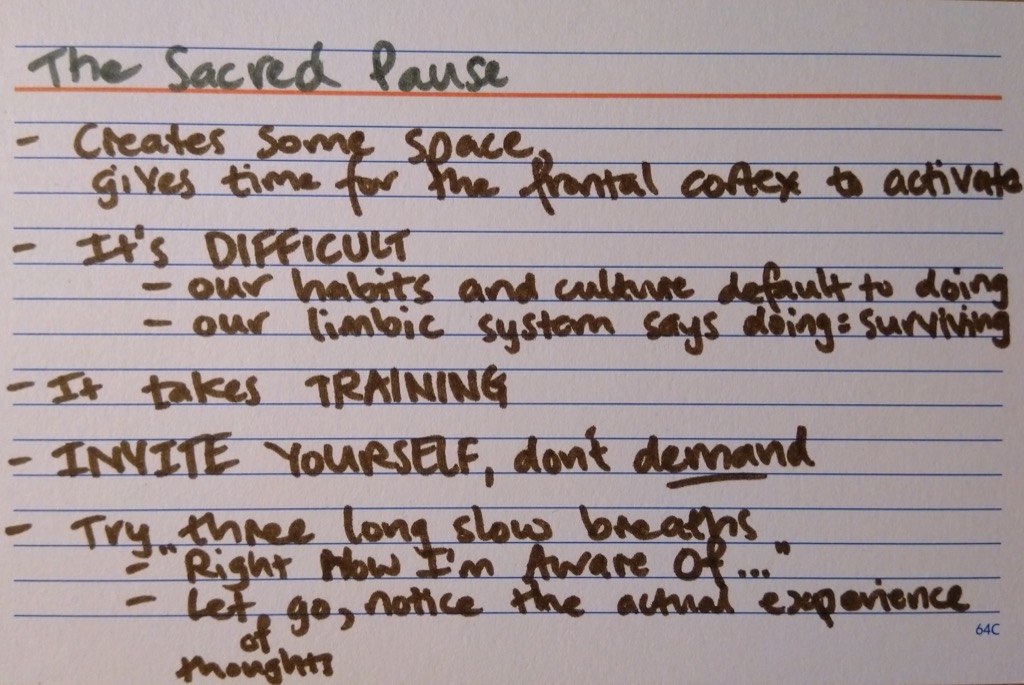 The Sacred Pause
- Creates some space,
gives time for the frontal cortex to activate
- It's DIFFICULT
- our habits and culture default to doing
- our limbic system says doing = surviving
- It takes TRAINING
- INVITE YOURSELF, don't demand
- Try three long slow breaths
- "Right Now I'm Aware Of..."
- Let go, notice the actual experience
of
thoughts
64C